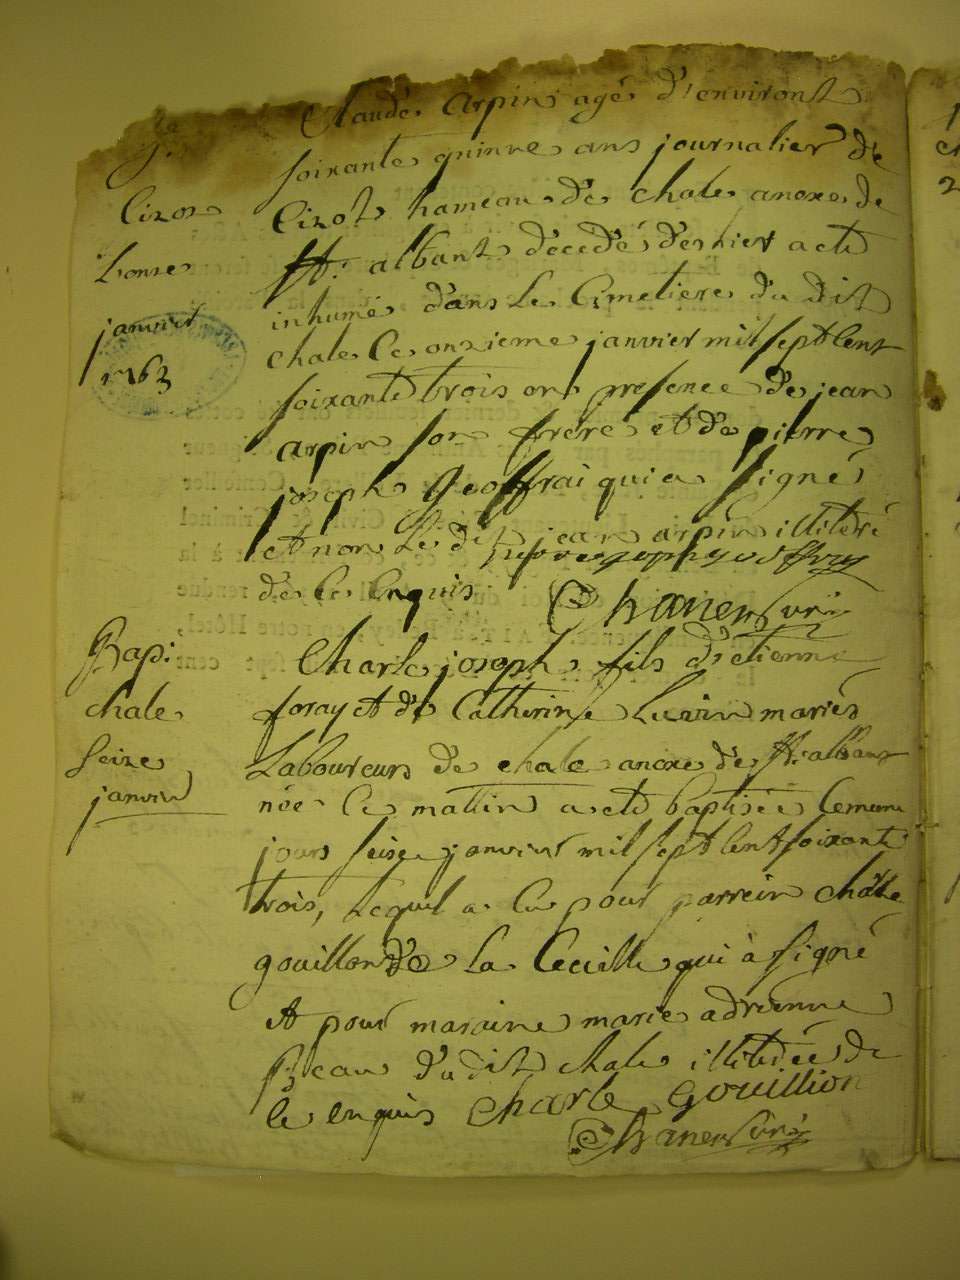 Claude Arpin agé d'environt
soixante quinne ans journalier de
Cizos
Cizot hameau de chale anexe de
L'onze
St: albant décedé d'eshier a eté
janvier
inhumé dans le Cimetiere du dit
1763
chale le onzieme janvier mil sept Cent
soixante trois en presence de jean
arpin son frere et de pierre
joseph Geoffrai qui a signé
et non le dit jean arpin illiteré
de ce enquis
Bapt:
Charle joseph fils d'etienne
chale
foray et de Catherine mariés
Seize
Laboureurs de chale anexe de St: albant
janvier
née ce mattin a eté baptisée le meme
jours seise janvier mil sept Cent soixante
trois, lequel a eu pour parrein charle
gouillon de La qui à signé
et pour maraine marie adrienne
du dit chale illiterée de
ce enquis Charle Gouillion